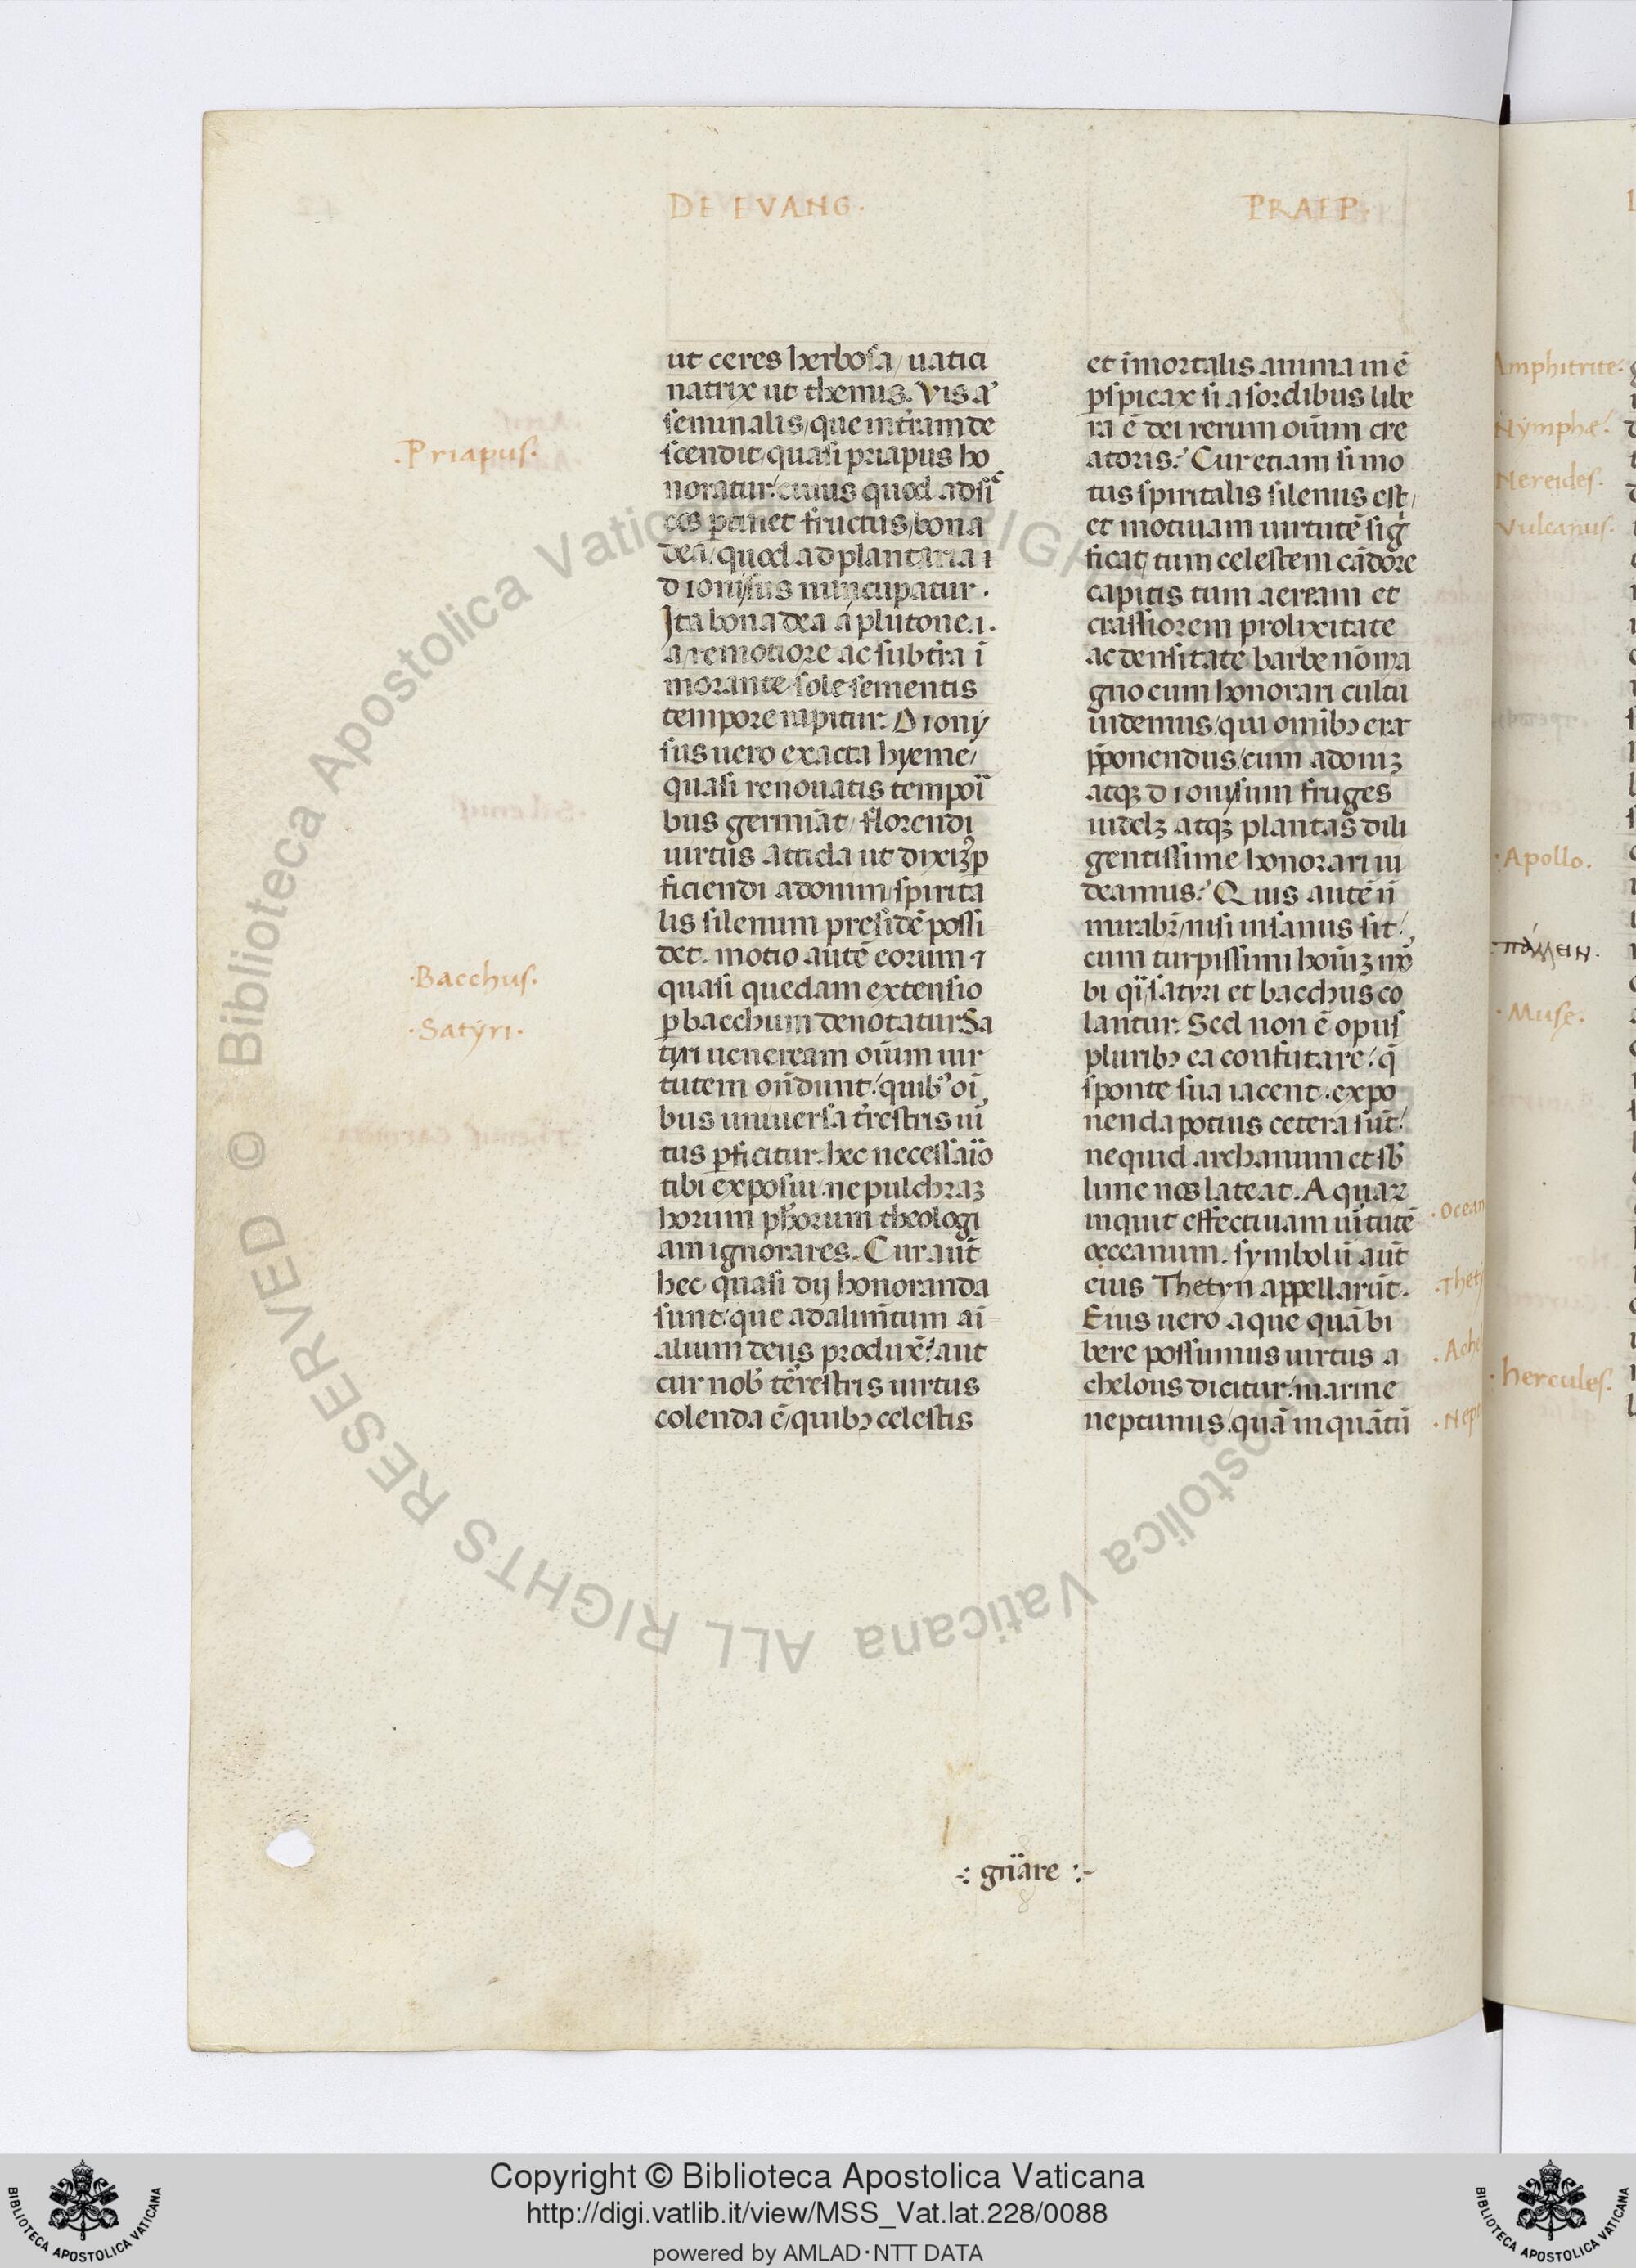 DE EVANG.
PRAEP.
ut ceres herbosa/ uatici
natrix ut themis. Vis aͥ
seminalis/ que in tr̃am de
scendit/ quasi priapus ho
noratur: cuius quod ad si
ces ꝑtinet fructus/ bona
dea/ quod ad plantaria ⁊
dionysius nuncupatur.
Ita bona dea a plutone .i.
a remotiore ac subtr̃a ĩ
morante sole sementis
tempore rapitur. Diony
sus uero exacta hyeme/
quasi renouatis tempoı̈
bus germiãt/ florendi
uirtus attida ut dixiꝫ ꝑ
ficiendi adonim/ spirita
lis silenum presidẽ possi
det. motio autẽ eorum ⁊
quasi quedam extensio
ꝑ bacchum denotatur Sa
tyri ueneream oĩum uir
tutem oñdunt: quibꝰ oĩ
bus uniuersa tr̃estris uĩ
tus ꝑficitur. hec necessaı̈o
tibi exposui. ne pulchraꝫ
horum ph̃orum theologi
am ignorares. Cur aũt
hec quasi dij honoranda
sunt: que ad alim̃tum aĩ
alium deus produxẽ? aut
cur nob̃ terrestris uirtus
colenda ẽ/ quibꝫ celestis
et ĩmortalis anima in ẽ
ꝑspicax si a sordibus libe
ra ẽ dei rerum oĩum cre
atoris? Cur etiam si mo
tus spiritalis silenus est/
et motiuam uirtutẽ sig
ficat/ tum celestem cãdore
capitis tum aeream et
crassiorem prolixitate
ac densitate barbe nõ ma
gno eum honorari cultu
uidemus/ qui omibꝫ erat
p̃ponendus/ cum adoniꝫ
atqꝫ dionysium fruges
uidelꝫ atqꝫ plantas dili
gentissime honorari ui
deamus? Quis autẽ ñ
mirabr̃/ nisi insanus sit/
cum turpissimi hoĩuꝫ mõ
bi qı̈ satyri et bacchus co
lantur. Sed non ẽ opus
pluribꝫ ea confutare: q̃
sponte sua iacent. expo
nenda potius cetera sũt:
ne quid archanum et sb̃
lime nos lateat. Aquaꝝ
inquit effectiuam uĩtutẽ
occeanum. symbolũ aũt
eius Thetyn appellarũt.
Eius uero aque quã bi
bere possumus uirtus a
chelous dicitur: marine
neptunus. quã inquãtũ
.Priapus.
.Bacchus.
.Satyri.
.Ocean
.Thety
.Ache
.Nept
Amphitrite.
Nymphæ.
Nereides.
Vulcanus.
.Apollo.
.Muse.
.hercules.
.: gñare :.
© Biblioteca Apostolica Vaticana ALL RIGHTS RESERVED
Copyright © Biblioteca Apostolica Vaticana
http://digi.vatlib.it/view/MSS_Vat.lat.228/0088
powered by AMLAD·NTT DATA
BIBLIOTECA APOSTOLICA VATICANA
BIBLIOTECA APOSTOLICA VATICANA